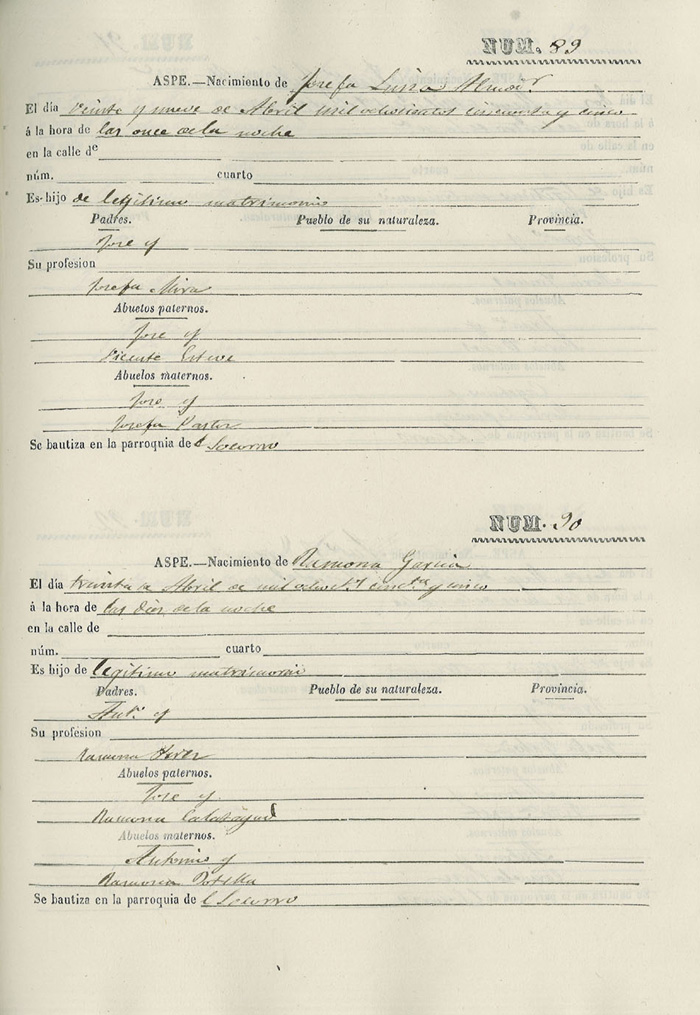 NUM. 89
ASPE.—Nacimiento de Josefa
El día veinte y nueve de Abril mil ochosientos cincuenta y cinco
á la hora de las once de la noche
en la calle de
núm. cuarto
Es hijo de legitimo matrimonio
Padres. Pueblo de su naturaleza. Provincia.
Jose y
Su profesion
Josefa Mira
Abuelos paternos.
Jose y
Vicenta Esteve
Abuelos maternos.
Jose y
Josefa Pastor
Se bautiza en la parroquia del Socorro
NUM. 90
ASPE.—Nacimiento de Ramona Garcia
El día treinta de Abril de mil y cinco
á la hora de las dies de la noche
en la calle de
núm. cuarto
Es hijo de legitimo matrimonio
Padres. Pueblo de su naturaleza. Provincia.
Ant.º y
Su profesion
Ramona
Abuelos paternos.
Jose y
Ramona Calatayud
Abuelos maternos.
Antonio y
Ramona Botella
Se bautiza en la parroquia de l Socorro